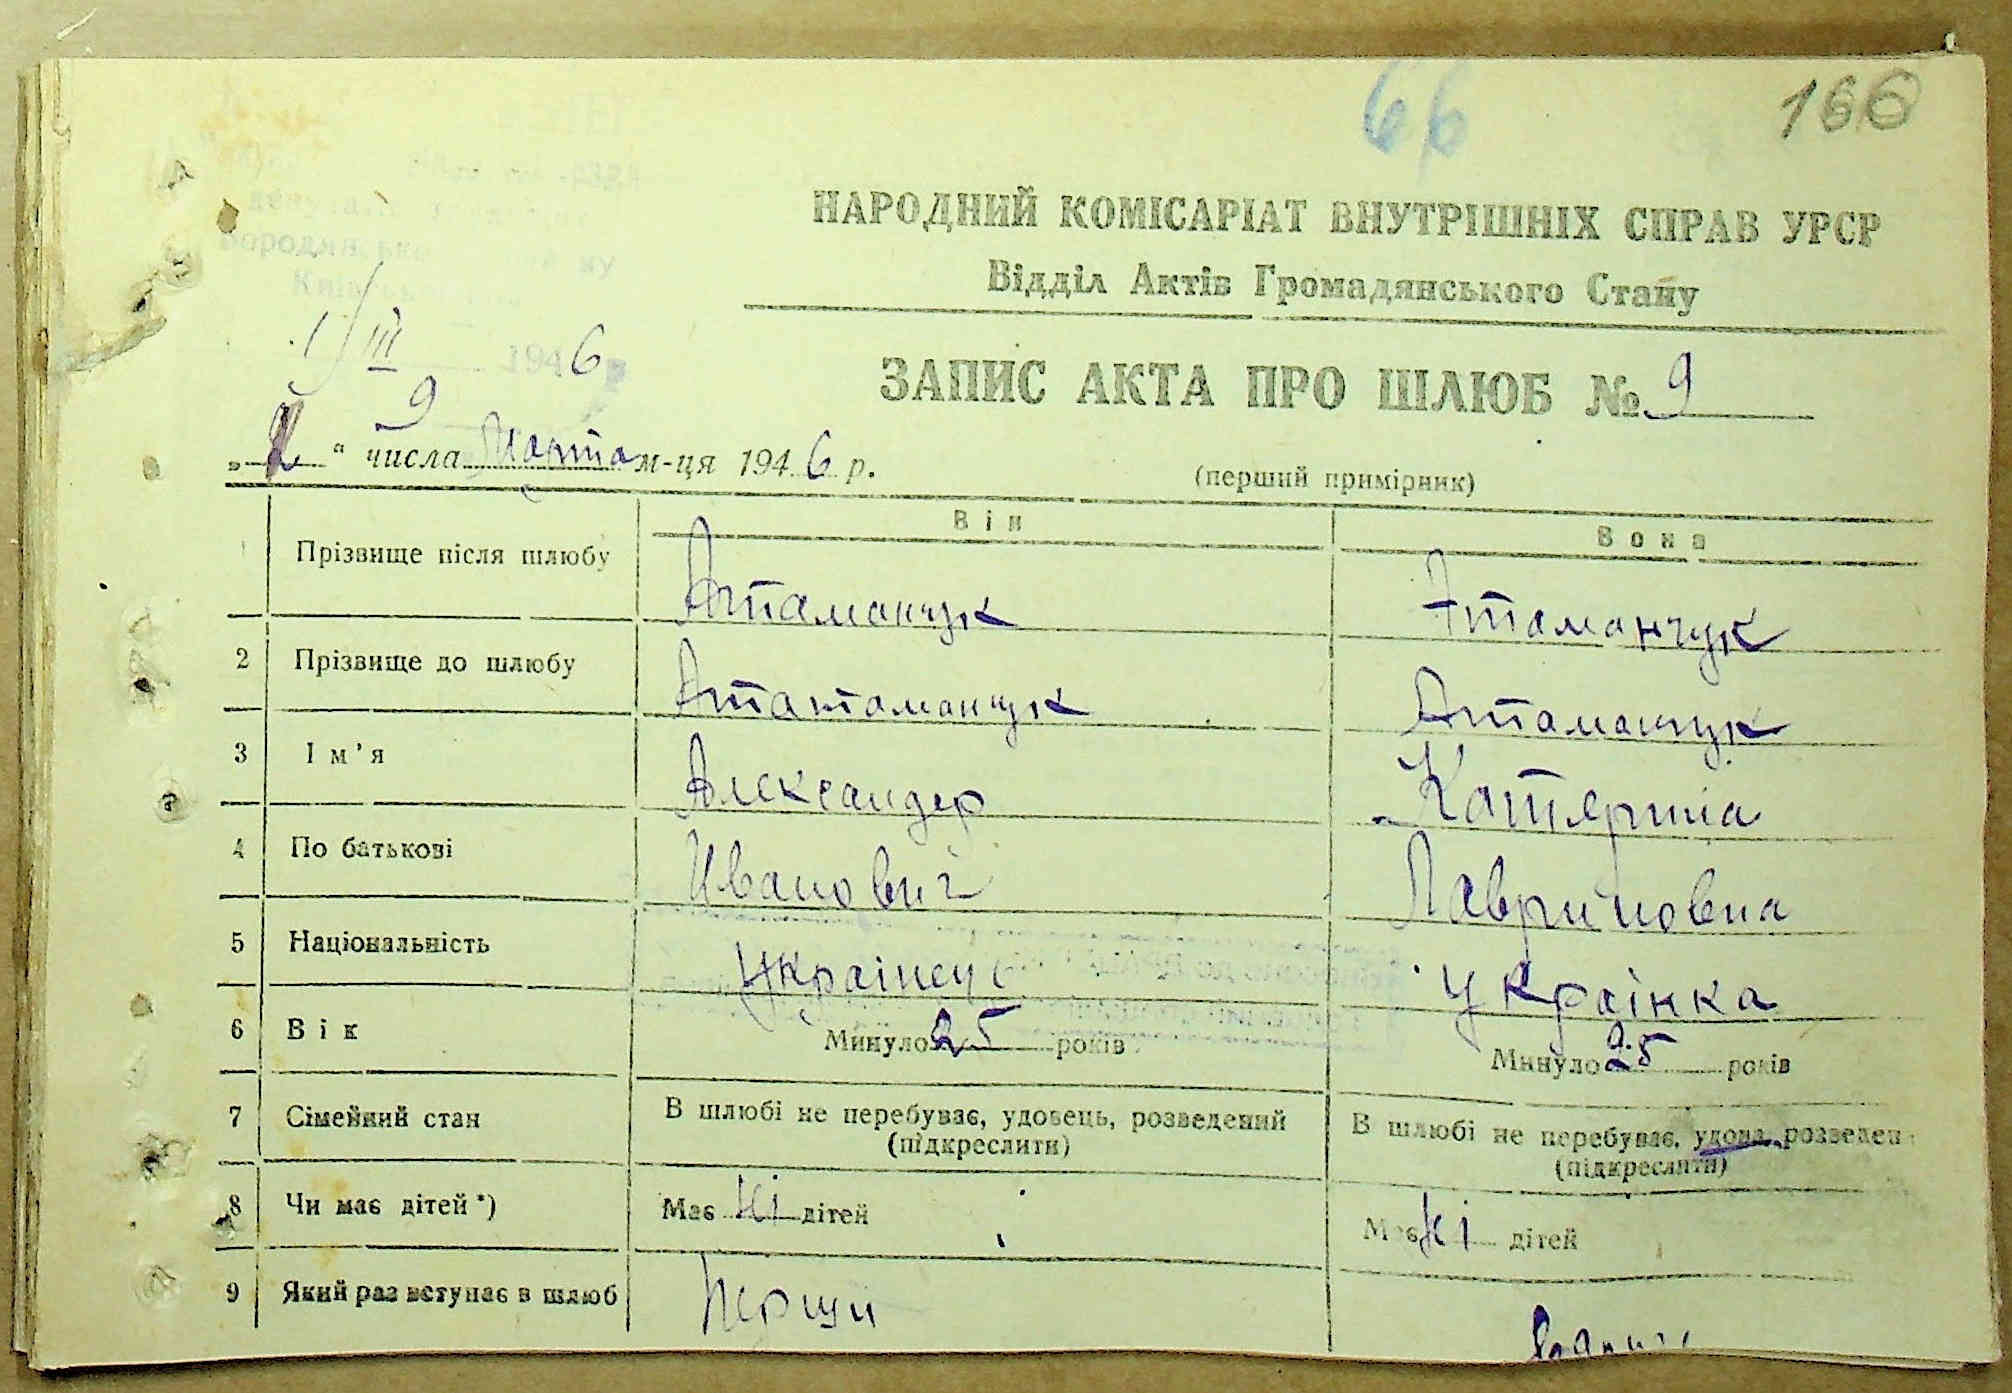 66
166
НАРОДНИЙ КОМІСАРІАТ ВНУТРІШНІХ СПРАВ УРСР
Відділ Актів Громадянського Стану
1/III 1946 р
9
ЗАПИС АКТА ПРО ШЛЮБ № 9
" числа Марта м-ця 1946 р.
(перший примірник)
Він
Вона
Прізвище після шлюбу Атаманчук Атаманчук
2 Прізвище до шлюбуАтатаманчук Атаманчук
3 Ім'я Александер Катерина
4 По батькові Иванович Лавриновна
5 Національність Українец Українка
6 Вік Минуло 25 років Минуло 25 років
7 Сімейний стан В шлюбі не перебуває, удовець, розведений (підкреслити) В шлюбі не перебуває, удова, розведен (підкреслити)
8 Чи має дітей *) Має ні дітей Має ні дітей
9 Який раз вступає в шлюб Перший